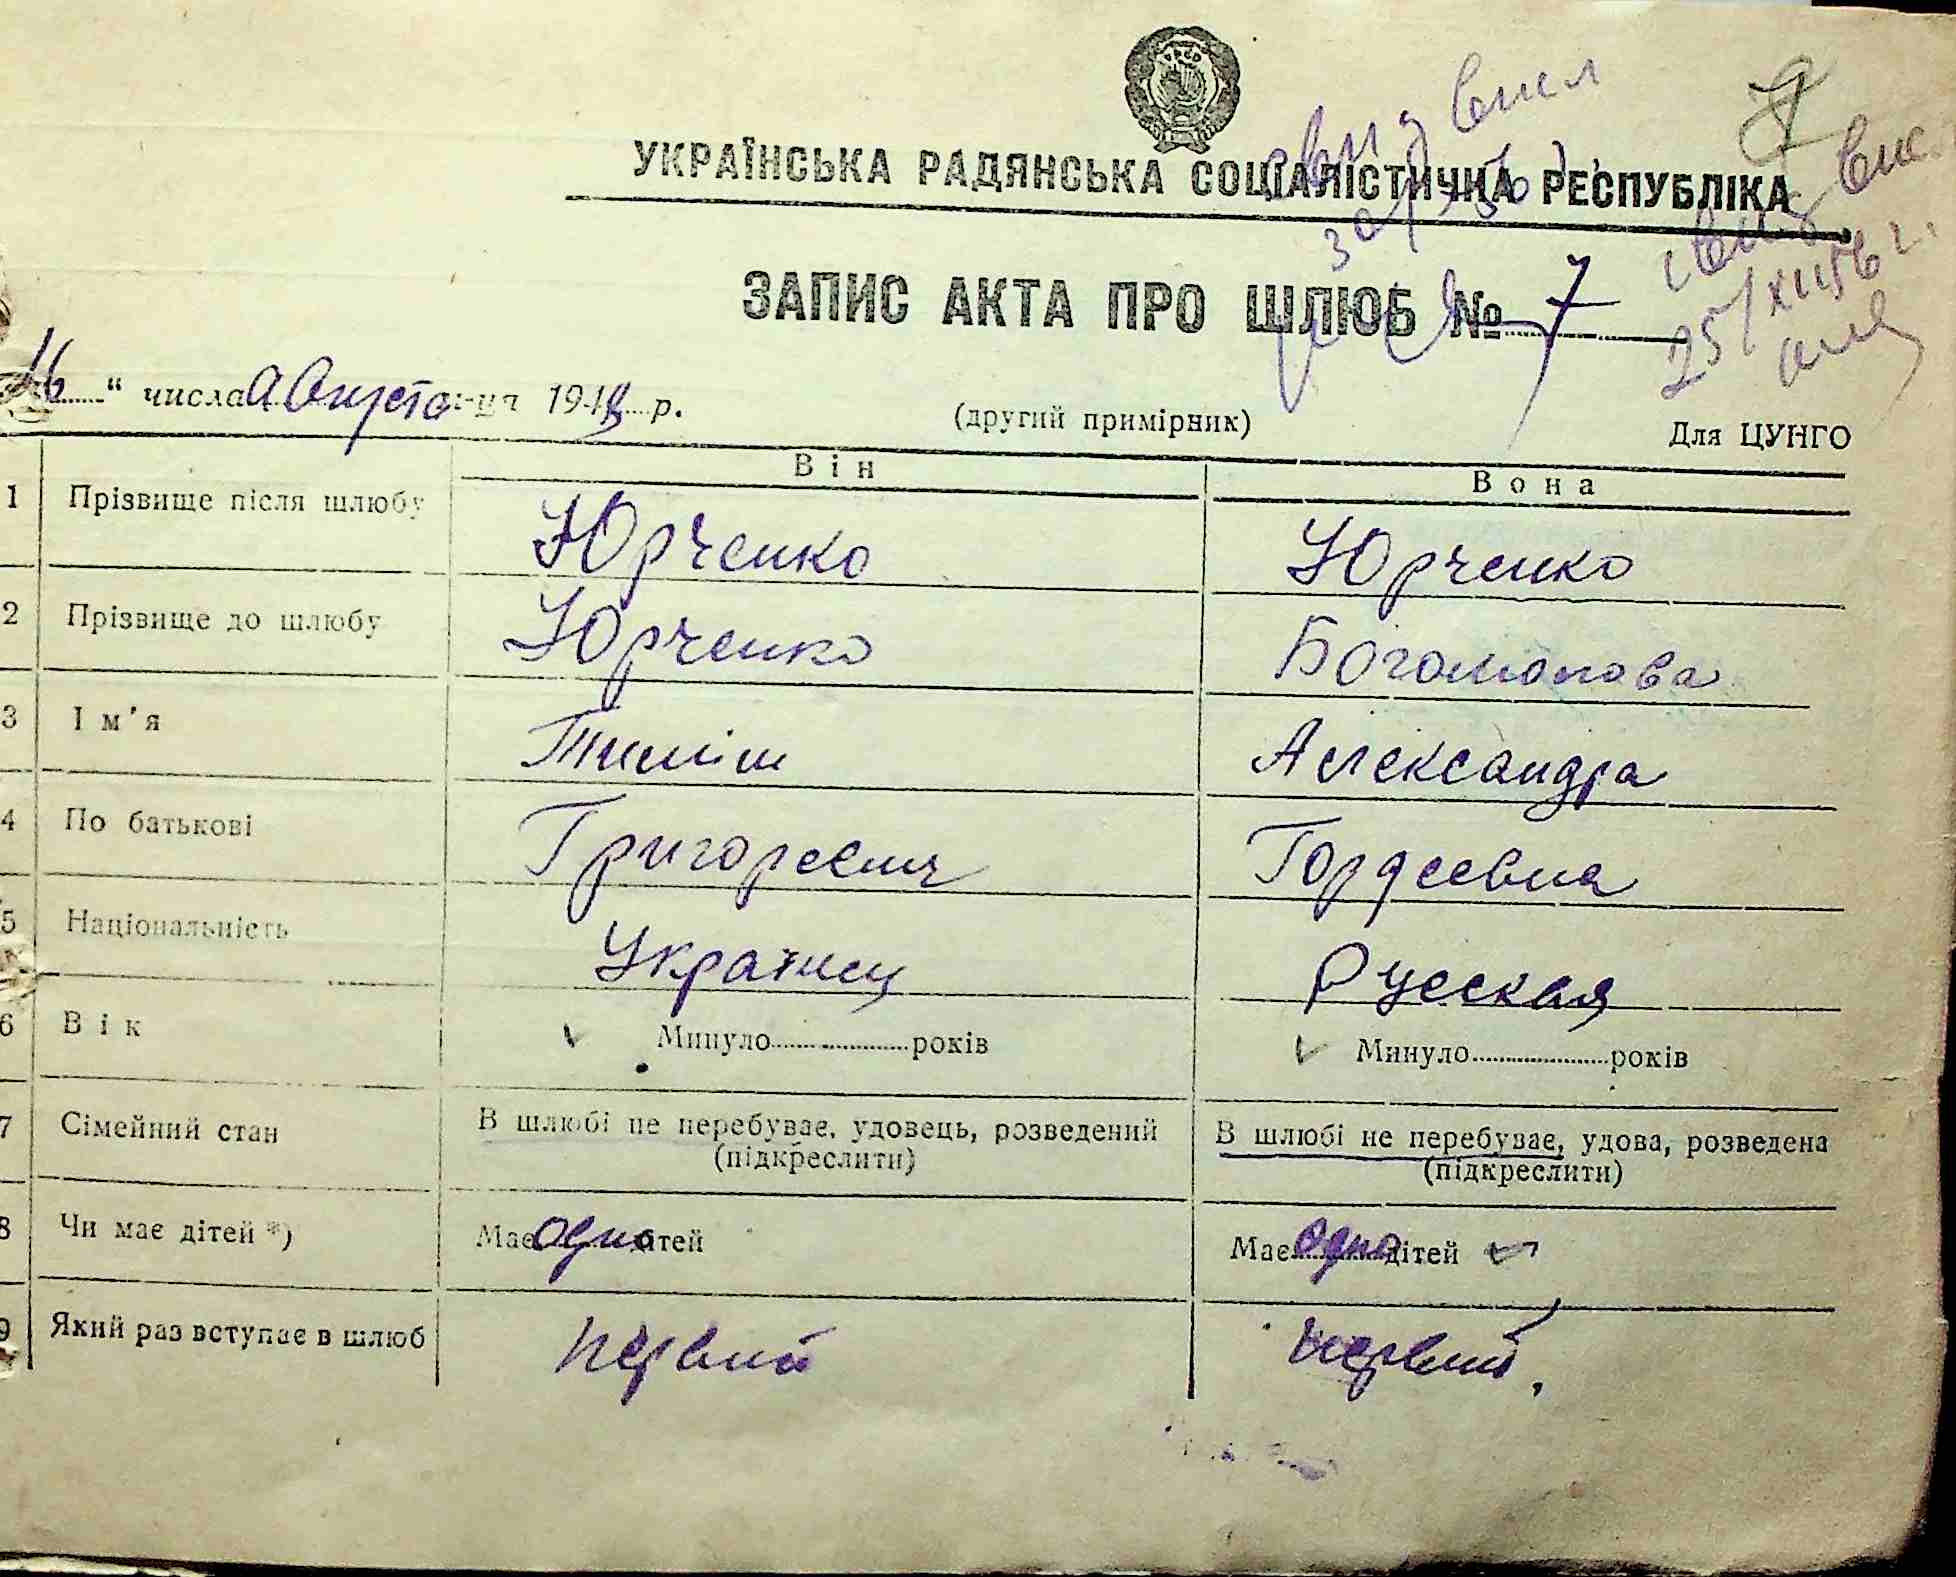 УКРАЇНСЬКА РАДЯНСЬКА СОЦІАЛІСТИЧНА РЕСПУБЛІКА
ЗАПИС АКТА ПРО ШЛЮБ № 7
16 " числа Августа 1948 р.
(другий примірник)
Для ЦУНГО
Він Вона
1 Прізвище після шлюбу Юрченко Юрченко
2 Прізвище до шлюбу Юрченко Богомолова
3 Ім'я Тиміш Александра
4 По батькові Григореевич Гордеевна
5 Національність Украінец Русская
6 Вік Минуло років Минуло років
7 Сімейний стан В шлюбі не перебуває, удовець, розведений В шлюбі не перебуває, удова, розведена
(підкреслити) (підкреслити)
8 Чи має дітей *) Має одно дітей Має одно дітей
9 Який раз вступає в шлюб первий первий
25/XII 56 г.